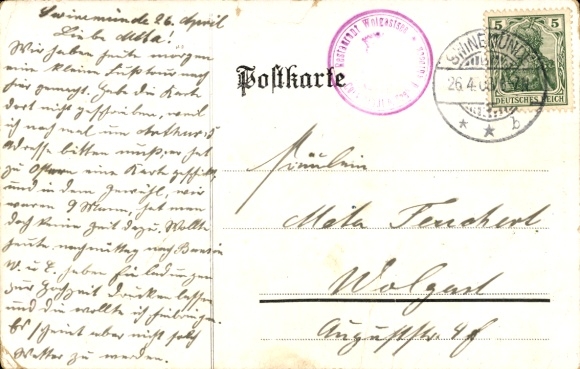 Swinemünde 26. April
Liebe Meta!
Wir haben heute morgen
eine kleine Fußtour nach
hier gemacht. Habe die Karte
dort nicht geschrieben, weil
ich noch mal um Arthur's
Adresse bitten muß, er hat
zu Ostern eine Karte geschickt
und in dem Gewühl, wir
waren 9 Mann, hat man
doch keine Zeit dazu. Wollte
heute nachmittag nach
W. u. L. haben Einladungen
zur Hochzeit drucken lassen
und die wollte ich
Es scheint aber nicht solch
Wetter zu werden.
Postkarte
Restaurant Wolgastsee
SWINEMÜNDE
26.4.
* * b
5 5
DEUTSCHES REICH
Fräulein
Meta Teuchert
Wolgast
Auguststr.